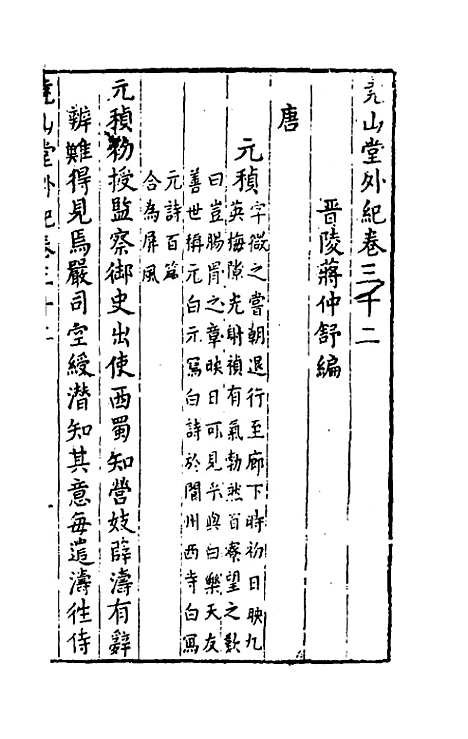 堯山堂外紀卷三十二
晉陵蔣仲舒編
唐
元稹字微之嘗朝退行至廊下時初日映九
英梅隙光射稹有氣勃然百寮望之歎
曰豈腸胃之章映日可見乎與白樂天友
善世稱元白元寫白詩於閬州西寺白寫
元詩百篇
合為屏風
元稹初授監察御史出使西蜀知營妓薛濤有辭
辨難得見焉嚴司空綬潛知其意每遣濤往侍
堯山堂外紀卷三十二